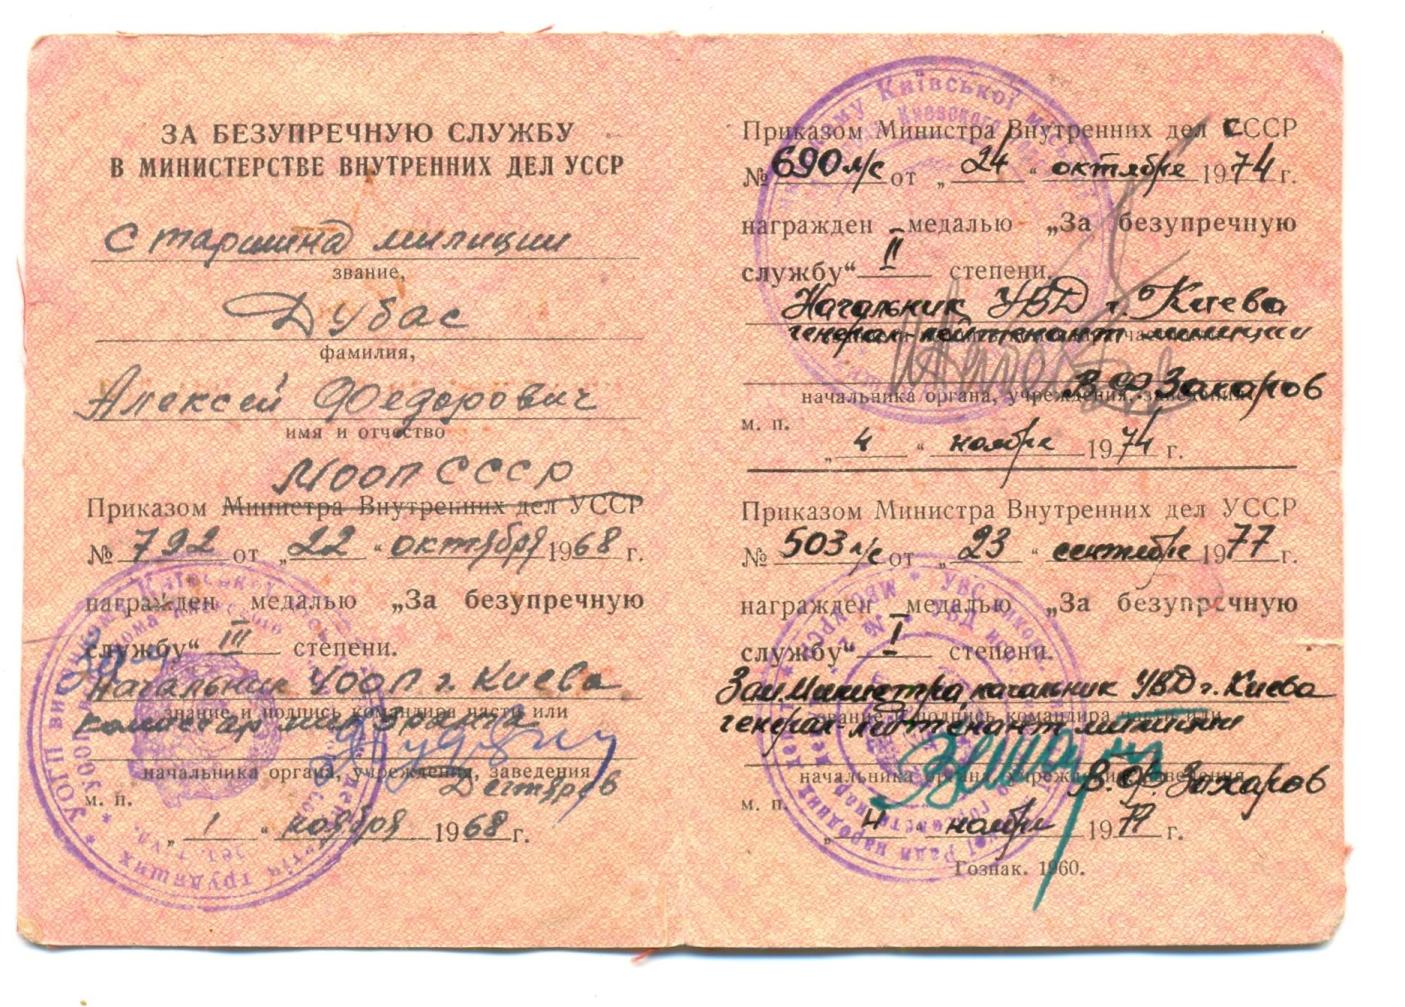 ЗА БЕЗУПРЕЧНУЮ СЛУЖБУ
В МИНИСТЕРСТВЕ ВНУТРЕННИХ ДЕЛ УССР
Старшина милиции
звание,
Дубас
фамилия,
Алексей Федорович
имя и отчество
МООП СССР
Приказом Министра Внутренних дел УССР
№ 792 от „22“ октября 1968 г.
награжден медалью „За безупречную
службу“ III степени.
Начальник УООП г. Киева
звание и подпись командира части или
комиссар милиции 3 ранга
начальника органа, учреждения, заведения
Дегтярев
м. п.
„1“ ноября 1968 г.
Приказом Министра Внутренних дел СССР
№ 690 л/с от „24“ октября 1974 г.
награжден медалью „За безупречную
службу“ II степени.
Начальник УВД г. Киева
генерал-лейтенант милиции
В.Ф. Захаров
начальника органа, учреждения, заведения
м. п.
„4“ ноября 1974 г.
Приказом Министра Внутренних дел УССР
№ 503 л/с от „23“ сентября 1977 г.
награжден медалью „За безупречную
службу“ I степени.
Зам. Министра, начальник УВД г. Киева
звание и подпись командира части или
генерал-лейтенант милиции
начальника органа, учреждения, заведения
В.Ф. Захаров
м. п.
„4“ ноября 1977 г.
Гознак. 1960.